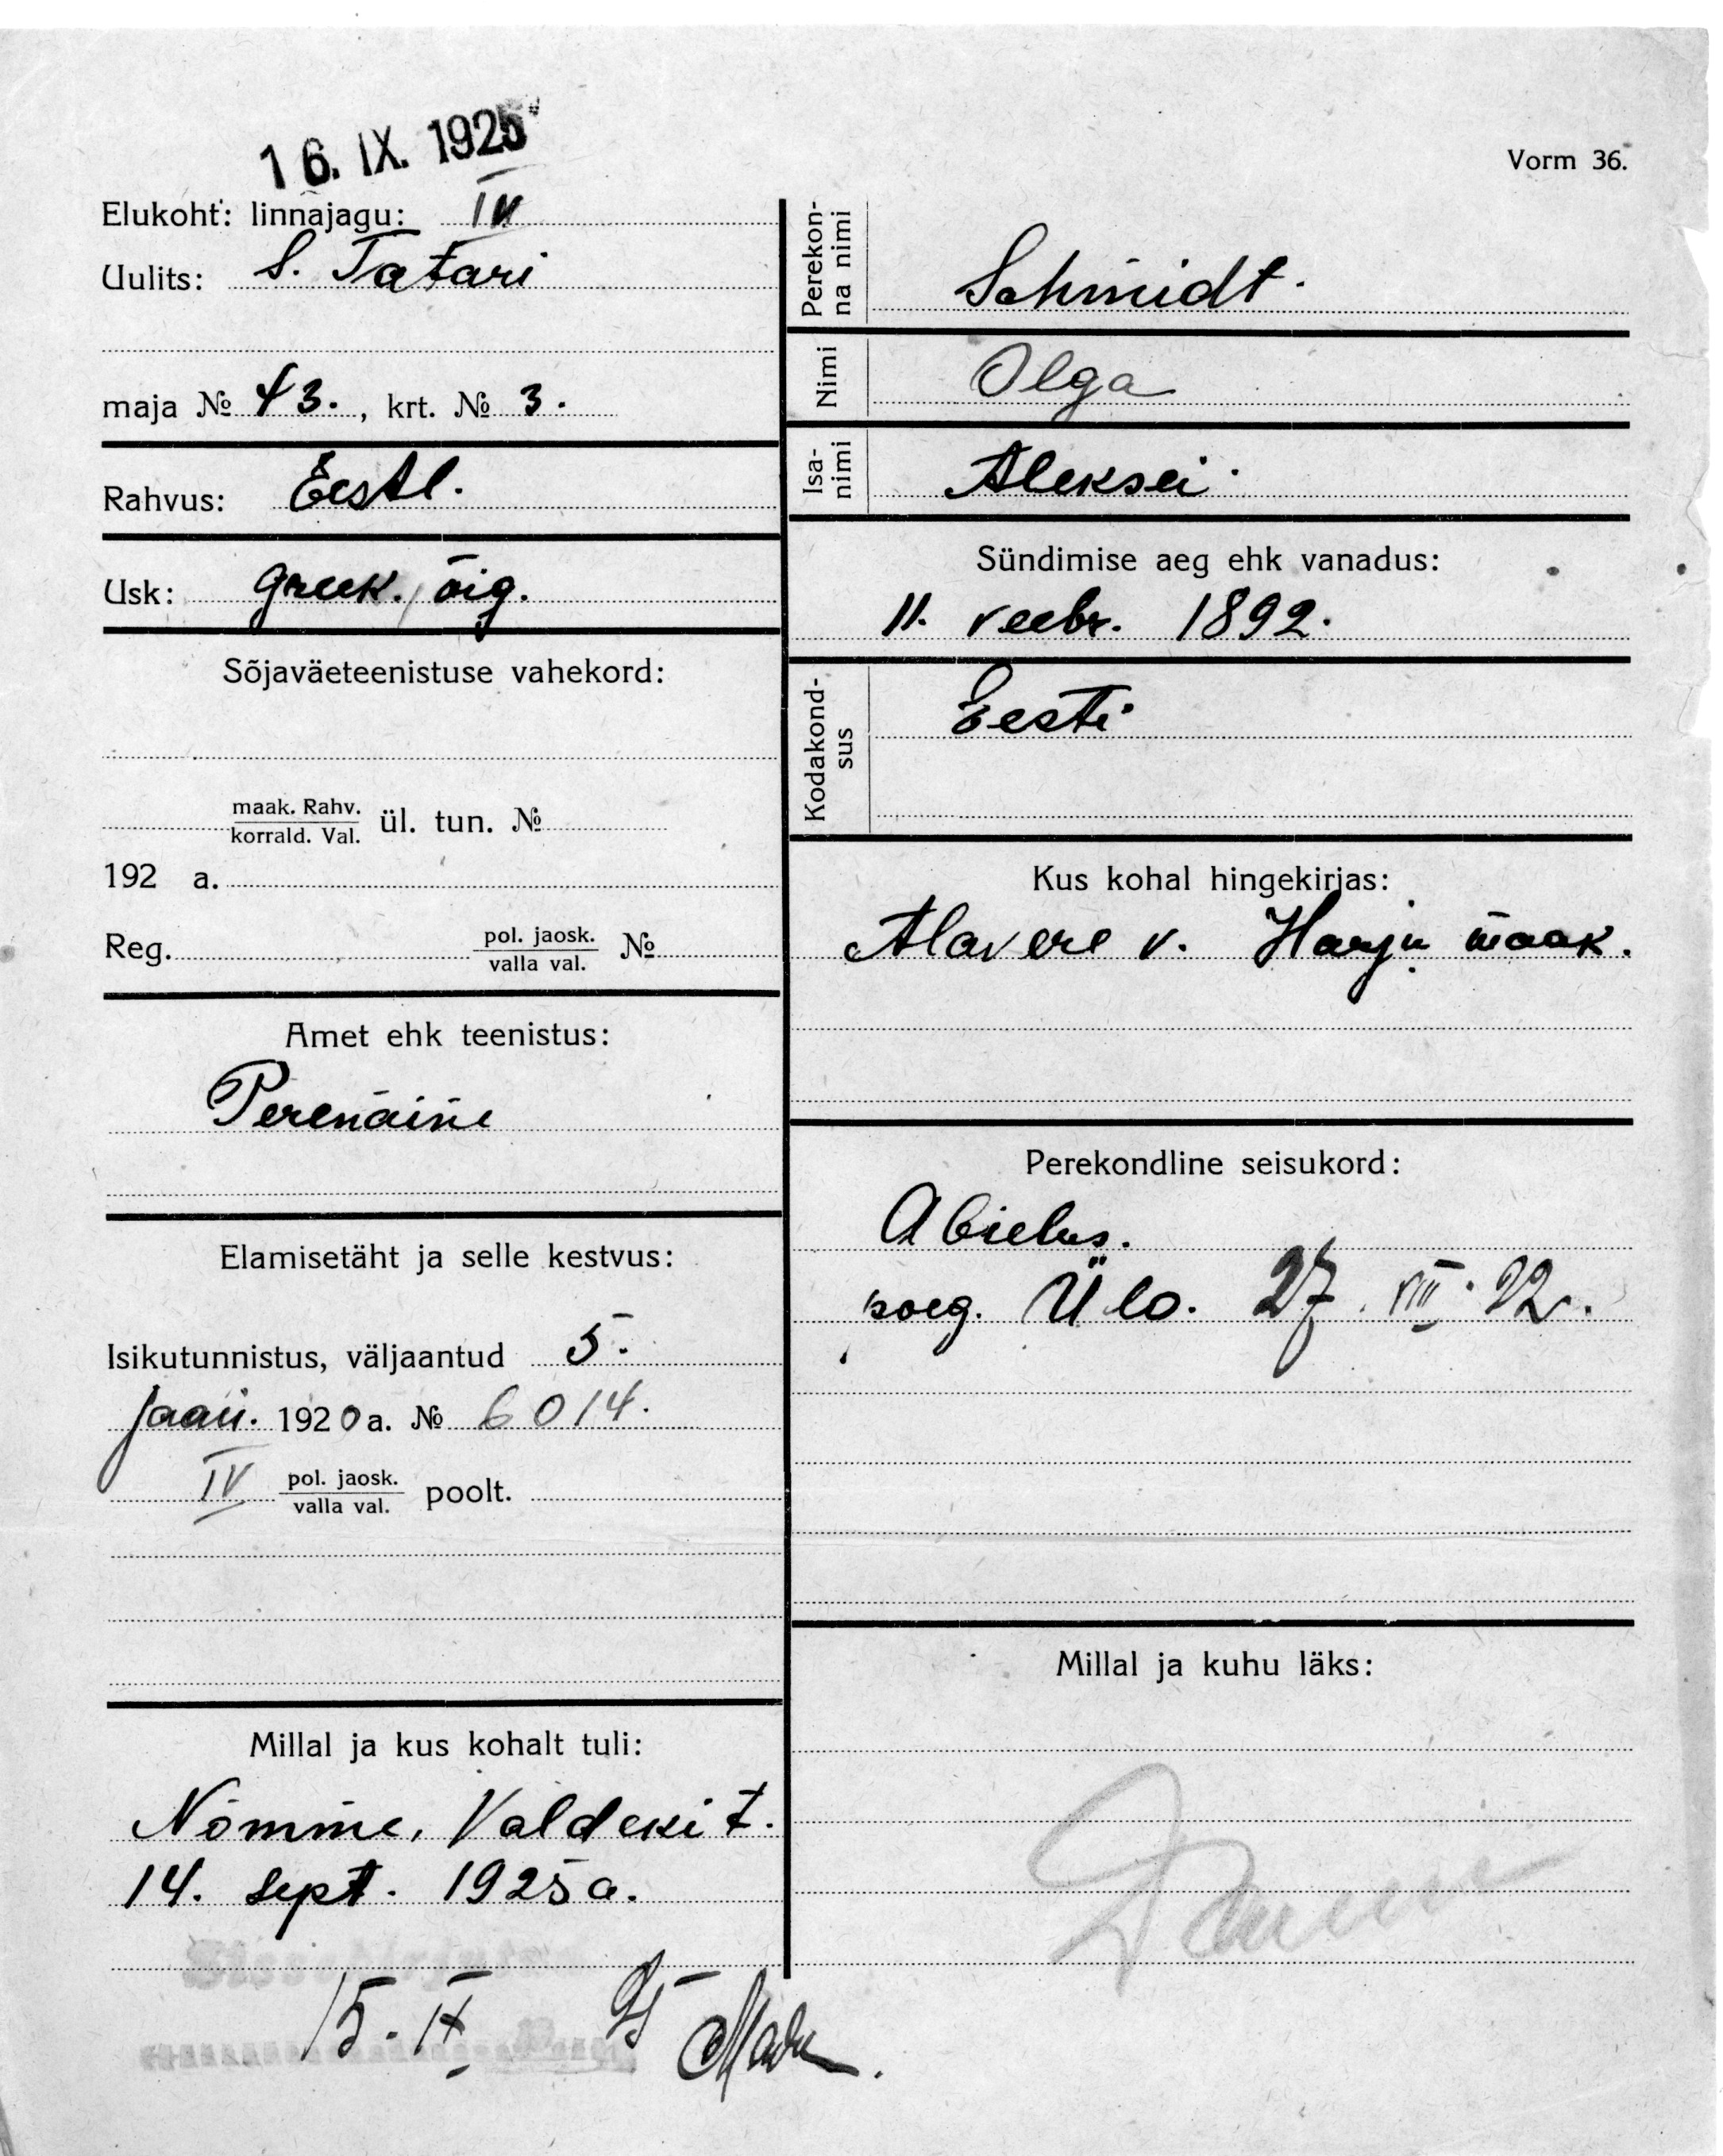 16. IX. 1925
Vorm 36.
Elukoht: linnajagu: IV
Uulits: S. Tatari
maja № 43., krt. № 3.
Rahvus: Eestl.
Usk: Greek. õig.
Sõjaväeteenistuse vahekord:
maak. Rahv.
korrald. Val. ül. tun. №
192 a.
Reg. pol. jaosk.
valla val. №
Amet ehk teenistus:
Perenaine
Elamisetäht ja selle kestvus:
Isikutunnistus, väljaantud 5.
jaan. 1920 a. № 6014.
IV pol. jaosk.
valla val. poolt.
Millal ja kus kohalt tuli:
Nõmme, Valdeki t.
14. sept. 1925 a.
15. IX 25
Perekon-
na nimi
Schmidt.
Nimi
Olga
Isa-
nimi
Aleksei
Sündimise aeg ehk vanadus:
11. veebr. 1892.
Kodakond-
sus
Eesti
Kus kohal hingekirjas:
Alavere v. Harju maak.
Perekondline seisukord:
Abielus.
poeg. Ülo. 27. VIII. 22.
Millal ja kuhu läks: